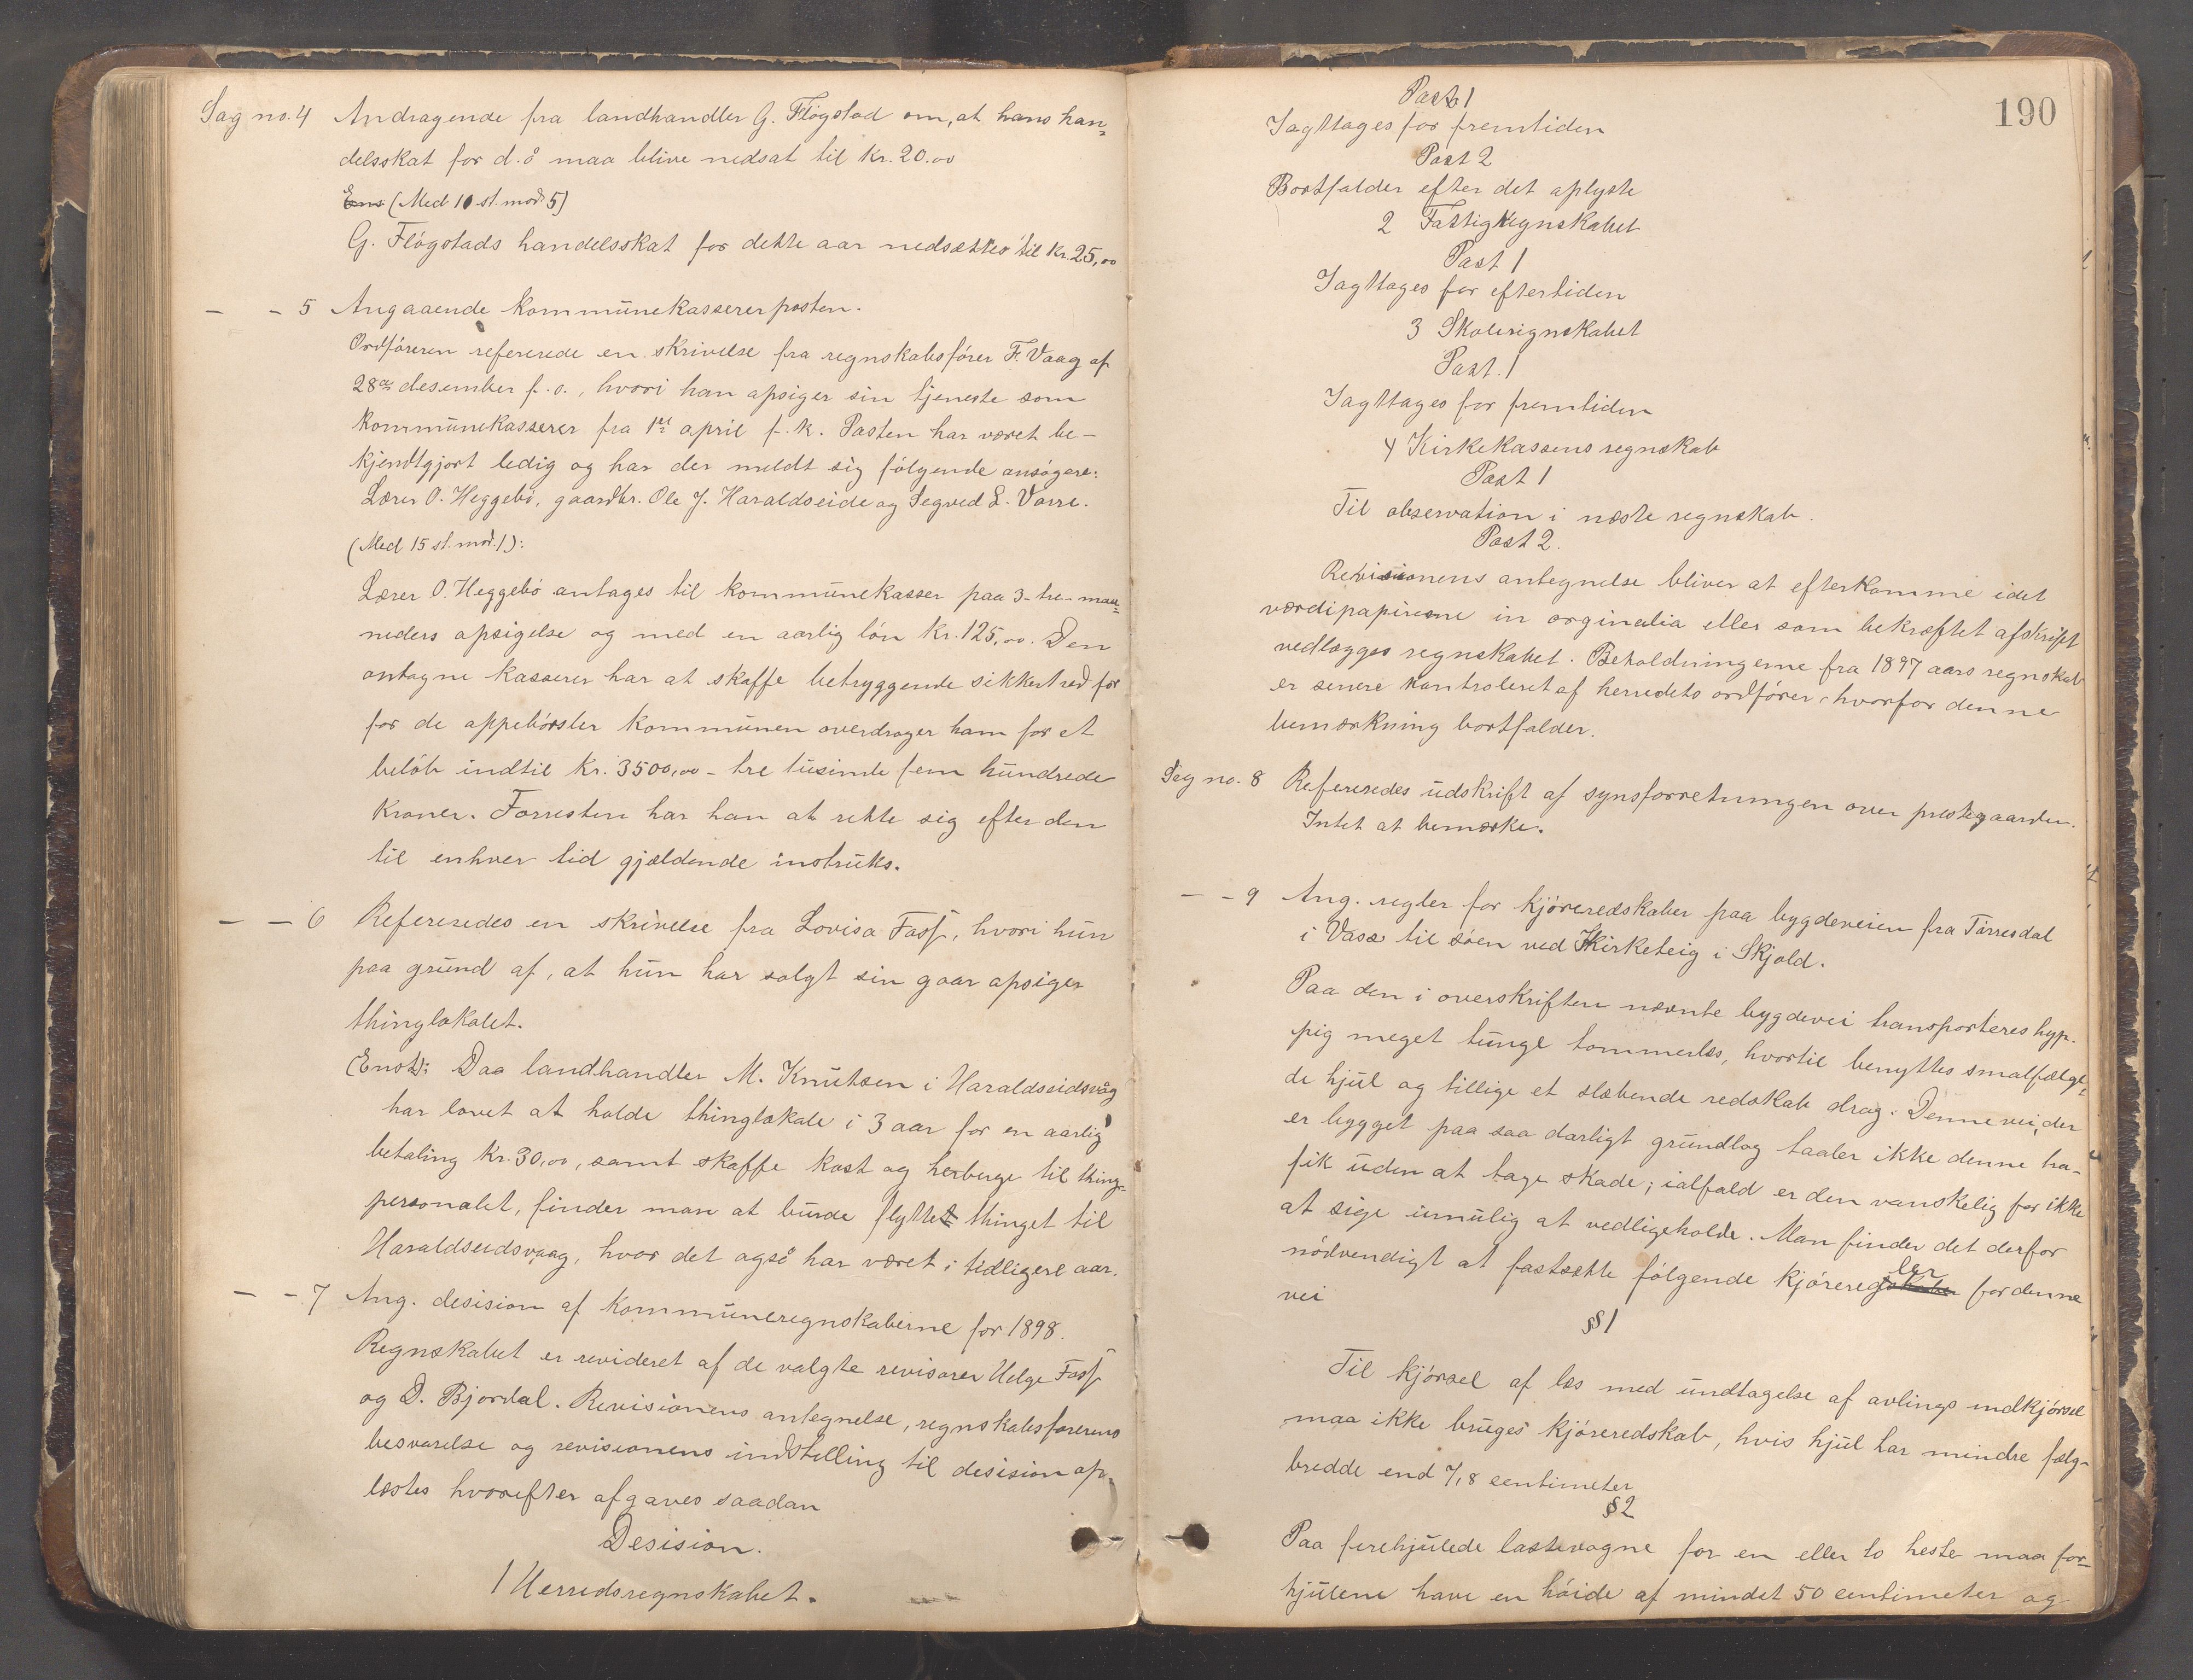 Sag no. 4 Andragende fra landhandler G. Fløgstad om, at hans han-
delsskat for d. å maa blive nedsat til kr. 20.00
Ens (Med 10 st. mod 5)
G. Fløgstads handelsskat for dette aar nedsættes til kr. 25,00
— - 5 Angaaende kommunekassererposten.
Ordføreren refererede en skrivelse fra regnskabsfører F. Vaag af
28de desember f. o., hvori han opsiger sin tjeneste som
kommunekasserer fra 1ste april f. k. Posten har været be-
kjendtgjort ledig og har der meldt sig følgende ansøgere:
Lærer O. Heggebø, gaardbr. Ole J. Haraldseide og Segved L. Vorre.
(Med 15 st. mod 1):
Lærer O. Heggebø antages til kommunekasser paa 3-tre-maa-
neders opsigelse og med en aarlig løn kr. 125,00. Den
antagne kasserer har at skaffe betryggende sikkerhed for
for de oppebørsler kommunen overdrager ham for et
beløb indtil kr. 3500,00 - tre tusinde fem hundrede
kroner. Forresten har han at rette sig efter den
til enhver tid gjældende instruks.
— - 6 Refereredes en skrivelse fra Lovisa Fosf, hvori hun
paa grund af, at hun har solgt sin gaar opsiger
thinglokalet.
(Enst): Daa landhandler M. Knutsen i Haraldseidsvåg
har lovet at holde thinglokale i 3 aar for en aarlig
betaling kr. 30,00, samt skaffe kost og herberge til thing-
personalet, finder man at burde flyttet thinget til
Haraldseidsvaag, hvor det også har været i tidligere aar.
— - 7 Ang. desision af kommuneregnskaberne for 1898.
Regnskabet er revideret af de valgte revisorer Helge Fosf
og D. Bjordal. Revisionens antegnelse, regnskabsførerens
besvarelse og revisionens indstilling til desision op-
læstes hvorefter afgaves saadan
Desision.
1 Herredsregnskabet.
190
Post 1
Iagttages for fremtiden
Post 2
Bortfalder efter det oplyste
2 Fattigregnskabet
Post 1
Iagttages for eftertiden
3 Skoleregnskabet
Post. 1
Iagttages for fremtiden
4 Kirkekassens regnskab
Post 1
Til observation i næste regnskab.
Post 2.
Revisionens antegnelse bliver at efterkomme idet
værdipapirerne in orginalia eller som bekræftet afskrift
vedlægges regnskabet. Beholdningerne fra 1897 aars regnskab
er senere kontroleret af herredets ordfører, hvorfor denne
bemærkning bortfalder.
Sag no. 8 Refereredes udskrift af synsforretningen over prestegaarden.
Intet at bemærke.
— - 9 Ang. regler for kjøreredskaber paa bygdeveien fra Tørresdal
i Vass til søen ved Kirketeig i Skjold.
Paa den i overskriften nævnte bygdevei transporteres hyp-
pig meget tunge tommerlæs, hvortil benyttes smalfælge-
de hjul og tillige et slæbende redskab drag. Denne vei, der
er bygget paa saa darligt grundlag taaler ikke denne tra-
fik uden at tage skade; ialfald er den vanskelig for ikke
at sige umulig at vedligeholde. Man finder det derfor
nødvendigt at fastsætte følgende kjøreregler for denne
vei
§§ 1
Til kjørsel af læs med undtagelse af avlings indkjørsel
maa ikke bruges kjøreredskab, hvis hjul har mindre fælg-
bredde end 7,8 centimeter
§ 2
Paa firehjulede lastevogne for en eller to heste maa for-
hjulene have en høide af mindst 50 centimeter og